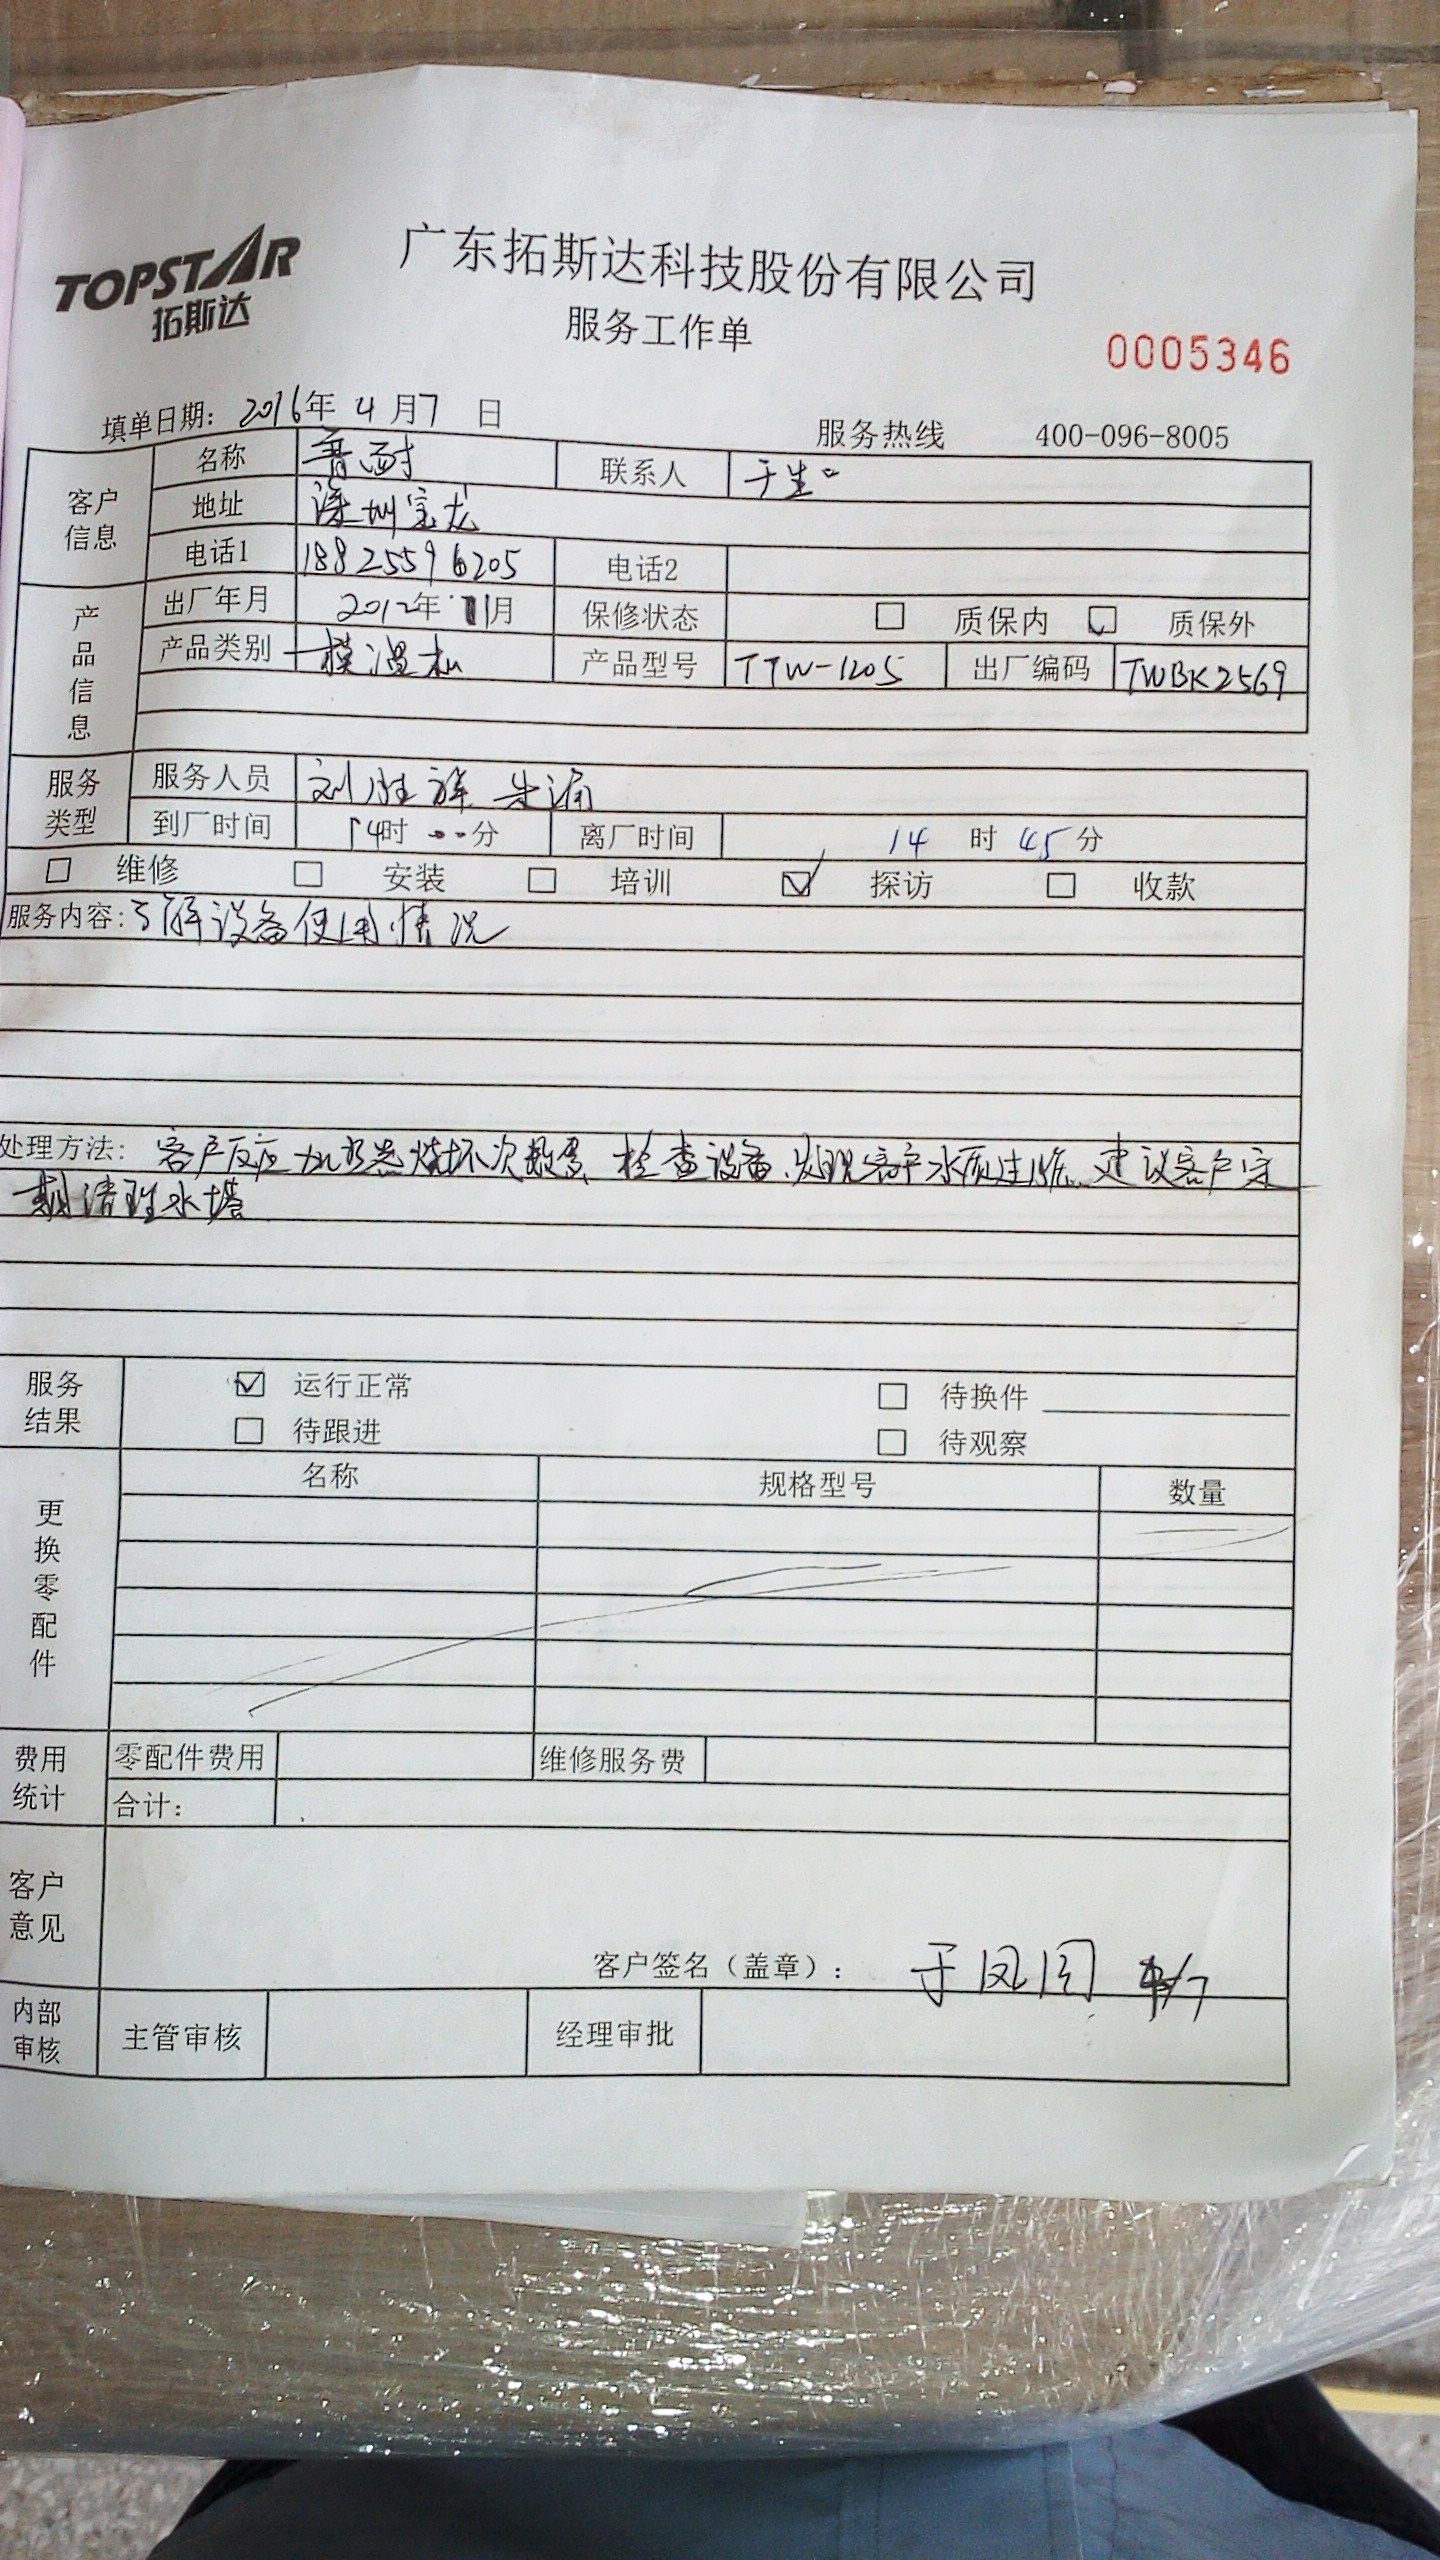 TOPSTAR
拓斯达
广东拓斯达科技股份有限公司
服务工作单
0005346
填单日期: 2016年 4月7 日
服务热线 400-096-8005
客户信息
名称 普耐 联系人 于生
地址 深圳宝龙
电话1 18825596205 电话2
产品信息
出厂年月 2012年11月 保修状态 质保内 质保外
产品类别 模温机 产品型号 TTW-1205 出厂编码 TWBK2569
服务类型
服务人员 刘胜
到厂时间 14时 00分 离厂时间 14时45分
维修 安装 培训 探访 收款
服务内容: 了解设备使用情况
处理方法: 客户反应加热器烧坏次数多、检查设备、发现客户水质过脏、建议客户定
期清理水塔
服务结果
运行正常 待换件
待跟进 待观察
更换零配件
名称 规格型号 数量
费用统计
零配件费用 维修服务费
合计:
客户意见
客户签名(盖章): 于凤 4/7
内部审核
主管审核 经理审批